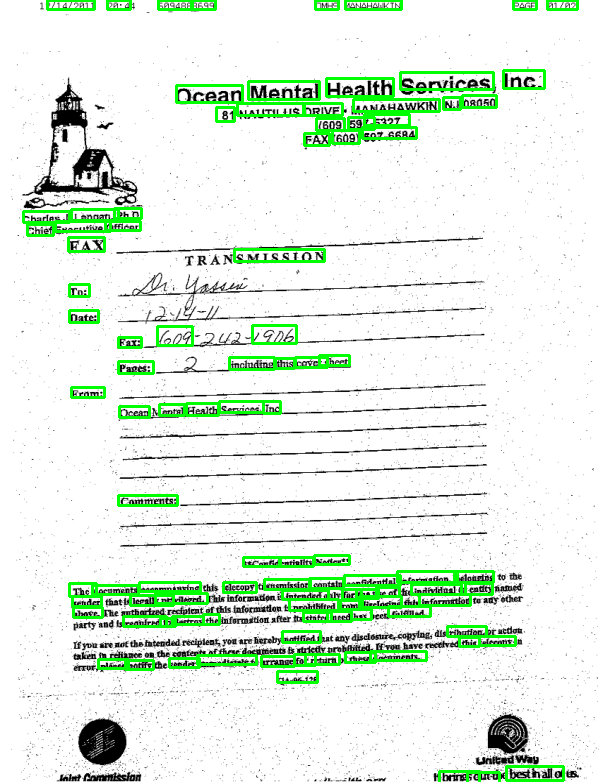 12/14/2011 20:44 6094888699 OMHS MANAHAWKIN PAGE 01/02
Ocean Mental Health Services, Inc.
81 NAUTILUS DRIVE • MANAHAWKIN N.J 08050
(609) 597-5327
FAX (609) 597-6684
Charles J. Langan, Ph.D
Chief Executive Officer
FAX
TRANSMISSION
To: Dr. Yassin
Date: 12-14-11
Fax: 609-242-1906
Pages: 2 including this cover sheet
From:
Ocean Mental Health Services, Inc
Comments:
**Confidentiality Notice**
The documents accompanying this telecopy transmission contain confidential information, belonging to the
sender that is legally privileged. This information is intended only for the use of the individual or entity named
above. The authorized recipient of this information is prohibited from disclosing this information to any other
party and is required to destroy the information after its stated need has been fulfilled.
If you are not the intended recipient, you are hereby notified that any disclosure, copying, distribution, or action
taken in reliance on the contents of these documents is strictly prohibited. If you have received this telecopy in
error, please notify the sender immediately to arrange for return of these documents.
Joint Commission
United Way
It brings out the best in all of us.